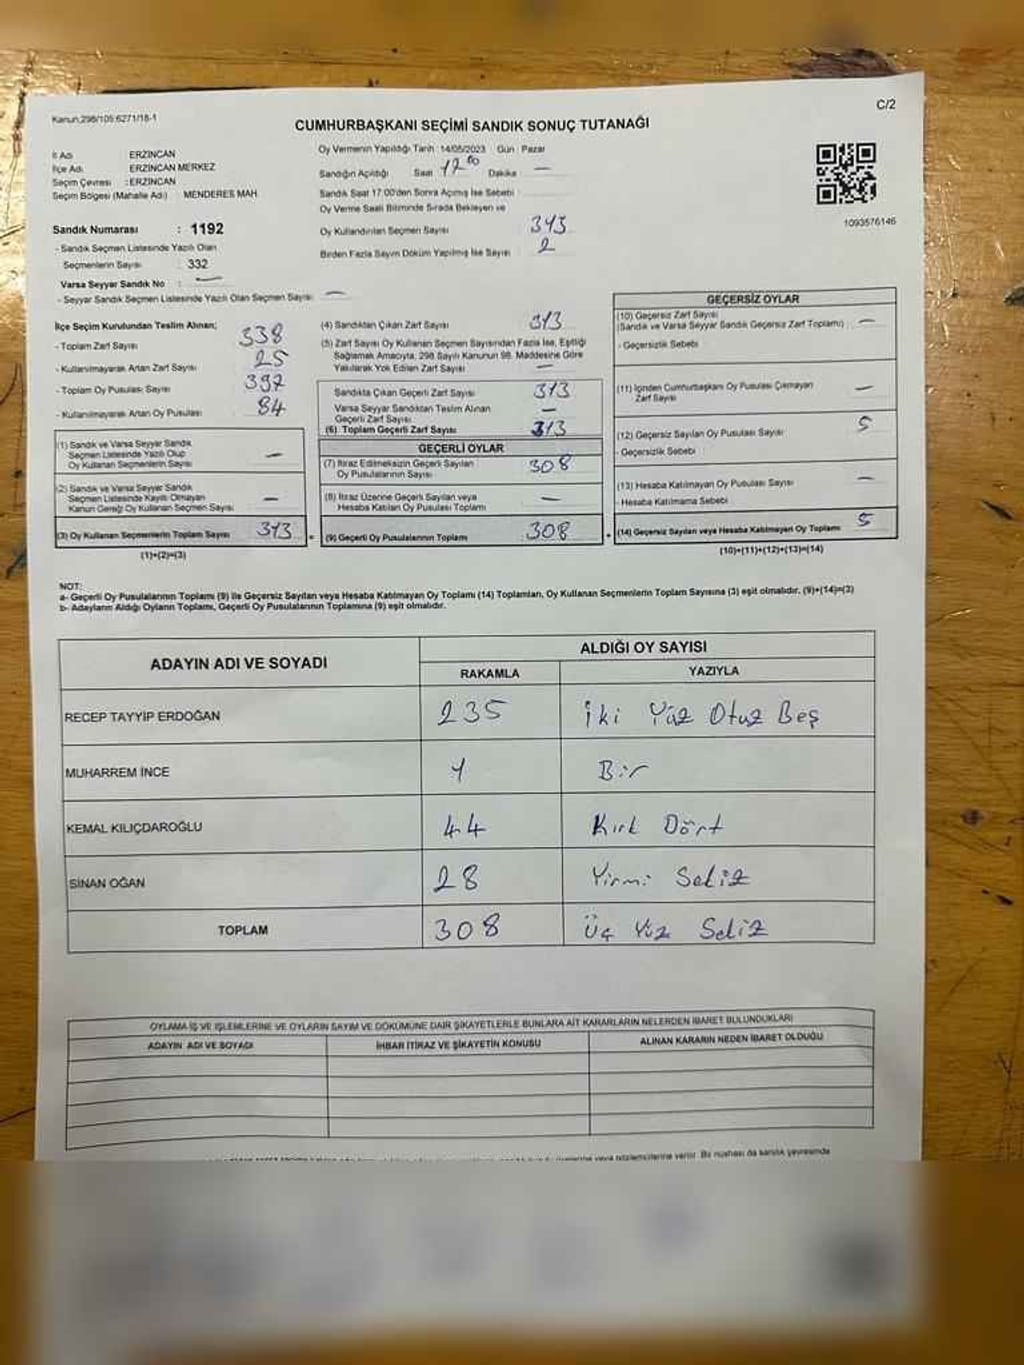 Kanun;298/105;6271/18-1
C/2
CUMHURBAŞKANI SEÇİMİ SANDIK SONUÇ TUTANAĞI
İl Adı : ERZİNCAN
İlçe Adı : ERZİNCAN MERKEZ
Seçim Çevresi : ERZİNCAN
Seçim Bölgesi (Mahalle Adı) : MENDERES MAH.
Sandık Numarası : 1192
- Sandık Seçmen Listesinde Yazılı Olan
Seçmenlerin Sayısı : 332
Varsa Seyyar Sandık No : —
- Seyyar Sandık Seçmen Listesinde Yazılı Olan Seçmen Sayısı: —
Oy Vermenin Yapıldığı Tarih : 14/05/2023 Gün : Pazar
Sandığın Açıldığı Saat 17 00 Dakika —
Sandık Saat 17:00'den Sonra Açılmış İse Sebebi :
Oy Verme Saati Bitiminde Sırada Bekleyen ve
Oy Kullandırılan Seçmen Sayısı 313
Birden Fazla Sayım Döküm Yapılmış İse Sayısı : 2
1093576146
İlçe Seçim Kurulundan Teslim Alınan;
- Toplam Zarf Sayısı : 338
- Kullanılmayarak Artan Zarf Sayısı : 25
- Toplam Oy Pusulası Sayısı : 397
- Kullanılmayarak Artan Oy Pusulası : 84
(1) Sandık ve Varsa Seyyar Sandık
Seçmen Listesinde Yazılı Olup
Oy Kullanan Seçmenlerin Sayısı —
(2) Sandık ve Varsa Seyyar Sandık
Seçmen Listesinde Kayıtlı Olmayan
Kanun Gereği Oy Kullanan Seçmen Sayısı —
(3) Oy Kullanan Seçmenlerin Toplam Sayısı 313
(1)+(2)=(3)
(4) Sandıktan Çıkan Zarf Sayısı 313
(5) Zarf Sayısı Oy Kullanan Seçmen Sayısından Fazla İse, Eşitliği
Sağlamak Amacıyla, 298 Sayılı Kanunun 98. Maddesine Göre
Yakılarak Yok Edilen Zarf Sayısı —
Sandıkta Çıkan Geçerli Zarf Sayısı 313
Varsa Seyyar Sandıktan Teslim Alınan
Geçerli Zarf Sayısı —
(6) Toplam Geçerli Zarf Sayısı 313
GEÇERLİ OYLAR
(7) İtiraz Edilmeksizin Geçerli Sayılan
Oy Pusulalarının Sayısı 308
(8) İtiraz Üzerine Geçerli Sayılan veya
Hesaba Katılan Oy Pusulası Toplamı —
= (9) Geçerli Oy Pusulalarının Toplamı 308
GEÇERSİZ OYLAR
(10) Geçersiz Zarf Sayısı
(Sandık ve Varsa Seyyar Sandık Geçersiz Zarf Toplamı) : —
- Geçersizlik Sebebi
(11) İçinden Cumhurbaşkanı Oy Pusulası Çıkmayan
Zarf Sayısı —
(12) Geçersiz Sayılan Oy Pusulası Sayısı 5
- Geçersizlik Sebebi
(13) Hesaba Katılmayan Oy Pusulası Sayısı —
- Hesaba Katılmama Sebebi
+ (14) Geçersiz Sayılan veya Hesaba Katılmayan Oy Toplamı 5
(10)+(11)+(12)+(13)=(14)
NOT:
a- Geçerli Oy Pusulalarının Toplamı (9) ile Geçersiz Sayılan veya Hesaba Katılmayan Oy Toplamı (14) Toplamları, Oy Kullanan Seçmenlerin Toplam Sayısına (3) eşit olmalıdır. (9)+(14)=(3)
b- Adayların Aldığı Oyların Toplamı, Geçerli Oy Pusulalarının Toplamına (9) eşit olmalıdır.
ADAYIN ADI VE SOYADI
ALDIĞI OY SAYISI
RAKAMLA YAZIYLA
RECEP TAYYİP ERDOĞAN 235 İki Yüz Otuz Beş
MUHARREM İNCE 1 Bir
KEMAL KILIÇDAROĞLU 44 Kırk Dört
SİNAN OĞAN 28 Yirmi Sekiz
TOPLAM 308 Üç Yüz Sekiz
OYLAMA İŞ VE İŞLEMLERİNE VE OYLARIN SAYIM VE DÖKÜMÜNE DAİR ŞİKAYETLERLE BUNLARA AİT KARARLARIN NELERDEN İBARET BULUNDUKLARI
ADAYIN ADI VE SOYADI İHBAR İTİRAZ VE ŞİKAYETİN KONUSU ALINAN KARARIN NEDEN İBARET OLDUĞU
veya temsilcilerine verilir. Bir nüshası da sandık çevresinde